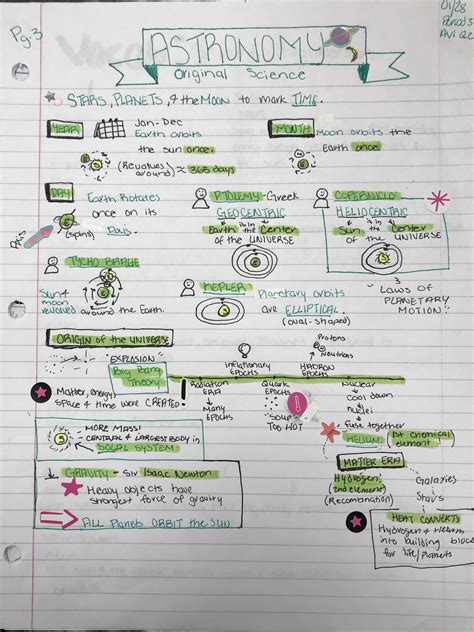 Pg. 3
01/28
Period 3
ASTRONOMY
Original Science
STARS, PLANETS, & the MOON to mark TIME.
YEAR
Jan-Dec
Earth orbits
the sun once.
(Revolves around) ≈ 365 days
MONTH
Moon orbits the
Earth once.
DAY
Earth Rotates
once on its
Axis.
(spins)
Axis
PTOLEMY-Greek
GEOCENTRIC
is in
Earth the Center
of the UNIVERSE
COPERNICUS
HELIOCENTRIC
is in
Sun the Center
of the UNIVERSE
TYCHO BRAHE
Sun &
moon
revolved around the Earth.
KEPLER
Planetary orbits
are ELLIPTICAL
(oval-shaped)
3
LAWS OF
PLANETARY
MOTION
ORIGIN OF THE UNIVERSE
EXPLOSION
Big Bang
Theory
Matter, energy,
space & time were CREATED!
Inflationary
EPOCHS
Protons
Neutrons
HADRON
EPOCHS
Radiation
ERA
Many
EPOCHS
Quark
EPOCHS
"SOUP"
TOO HOT
Nuclear
Cool down
nuclei
fuse together
HELIUM
1st chemical
element
MORE MASS!
CENTRAL & LARGEST BODY IN
SOLAR SYSTEM
S
GRAVITY - Sir Isaac Newton
Heavy objects have
strongest force of gravity
ALL Planets ORBIT the SUN
MATTER ERA
Hydrogen
(2nd element)
(Recombination)
Galaxies
Stars
HEAT CONVERTS
Hydrogen & Helium
into building blocks
for life/planets